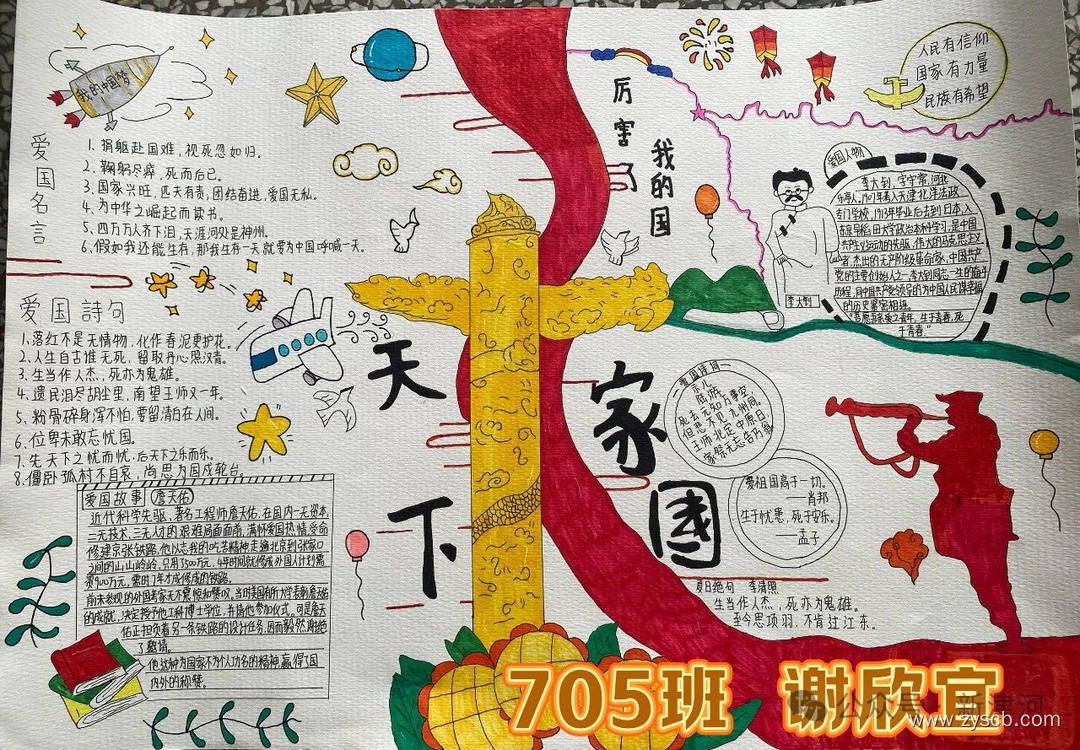 我的中国梦
爱国名言
1. 捐躯赴国难，视死忽如归。
2. 鞠躬尽瘁，死而后已。
3. 国家兴旺，匹夫有责，团结奋进，爱国无私。
4. 为中华之崛起而读书。
5. 四万万人齐下泪，天涯何处是神州。
6. 假如我还能生存，那我生存一天就要为中国呼喊一天。
爱国詩句
1、落红不是无情物，化作春泥更护花。
2、人生自古谁无死，留取丹心照汗青。
3、生当作人杰，死亦为鬼雄。
4、遗民泪尽胡尘里，南望王师又一年。
5、粉骨碎身浑不怕，要留清白在人间。
6、位卑未敢忘忧国。
7、先天下之忧而忧，后天下之乐而乐。
8、僵卧孤村不自哀，尚思为国戍轮台。
爱国故事 詹天佑
近代科学先驱、著名工程师詹天佑，在国内一无资本、
二无技术、三无人才的艰难局面面前，满怀爱国热情，受命
修建京张铁路。他以忘我的吃苦精神，走遍北京到张家口
之间的山山岭岭，只用了500万元、4年时间就修成外国人计划需
要900万元、需时7年才成修成的铁路。
前来参观的外国专家无不震惊和赞叹。当时美国有所大学表彰詹天佑
的成就，决定授予他工科博士学位，并请他参加仪式。可是詹天
佑正担负着另一条铁路的设计任务，因而毅然谢绝
了邀请。
他这种为国家不为个人功名的精神赢得了国
内外的称赞。
厉害了
我的国
人民有信仰
国家有力量
民族有希望
爱国人物
李大钊，字守常，河北
乐亭人，1907年考入天津北洋法政
专门学校，1913年毕业后去到日本，入
东京早稻田大学政治本科学习，是中国
共产主义运动的先驱，伟大的马克思主义
者、杰出的无产阶级革命家、中国共产
党的主要创始人之一，李大钊同志一生的奋斗
历程，同中国共产党领导的为中国人民谋幸福
的历史紧密相连。
李大钊
天下
家國
示儿
陆游
死去元知万事空
但悲不见九州同。
王师北定中原日
家祭无忘告乃翁
爱祖国高于一切。
——肖邦
生于忧患，死于安乐。
——孟子
夏日绝句 李清照
生当作人杰，死亦为鬼雄。
至今思项羽，不肯过江东。
705班 谢欣宜
公众号 新津河
www.zyscb.com